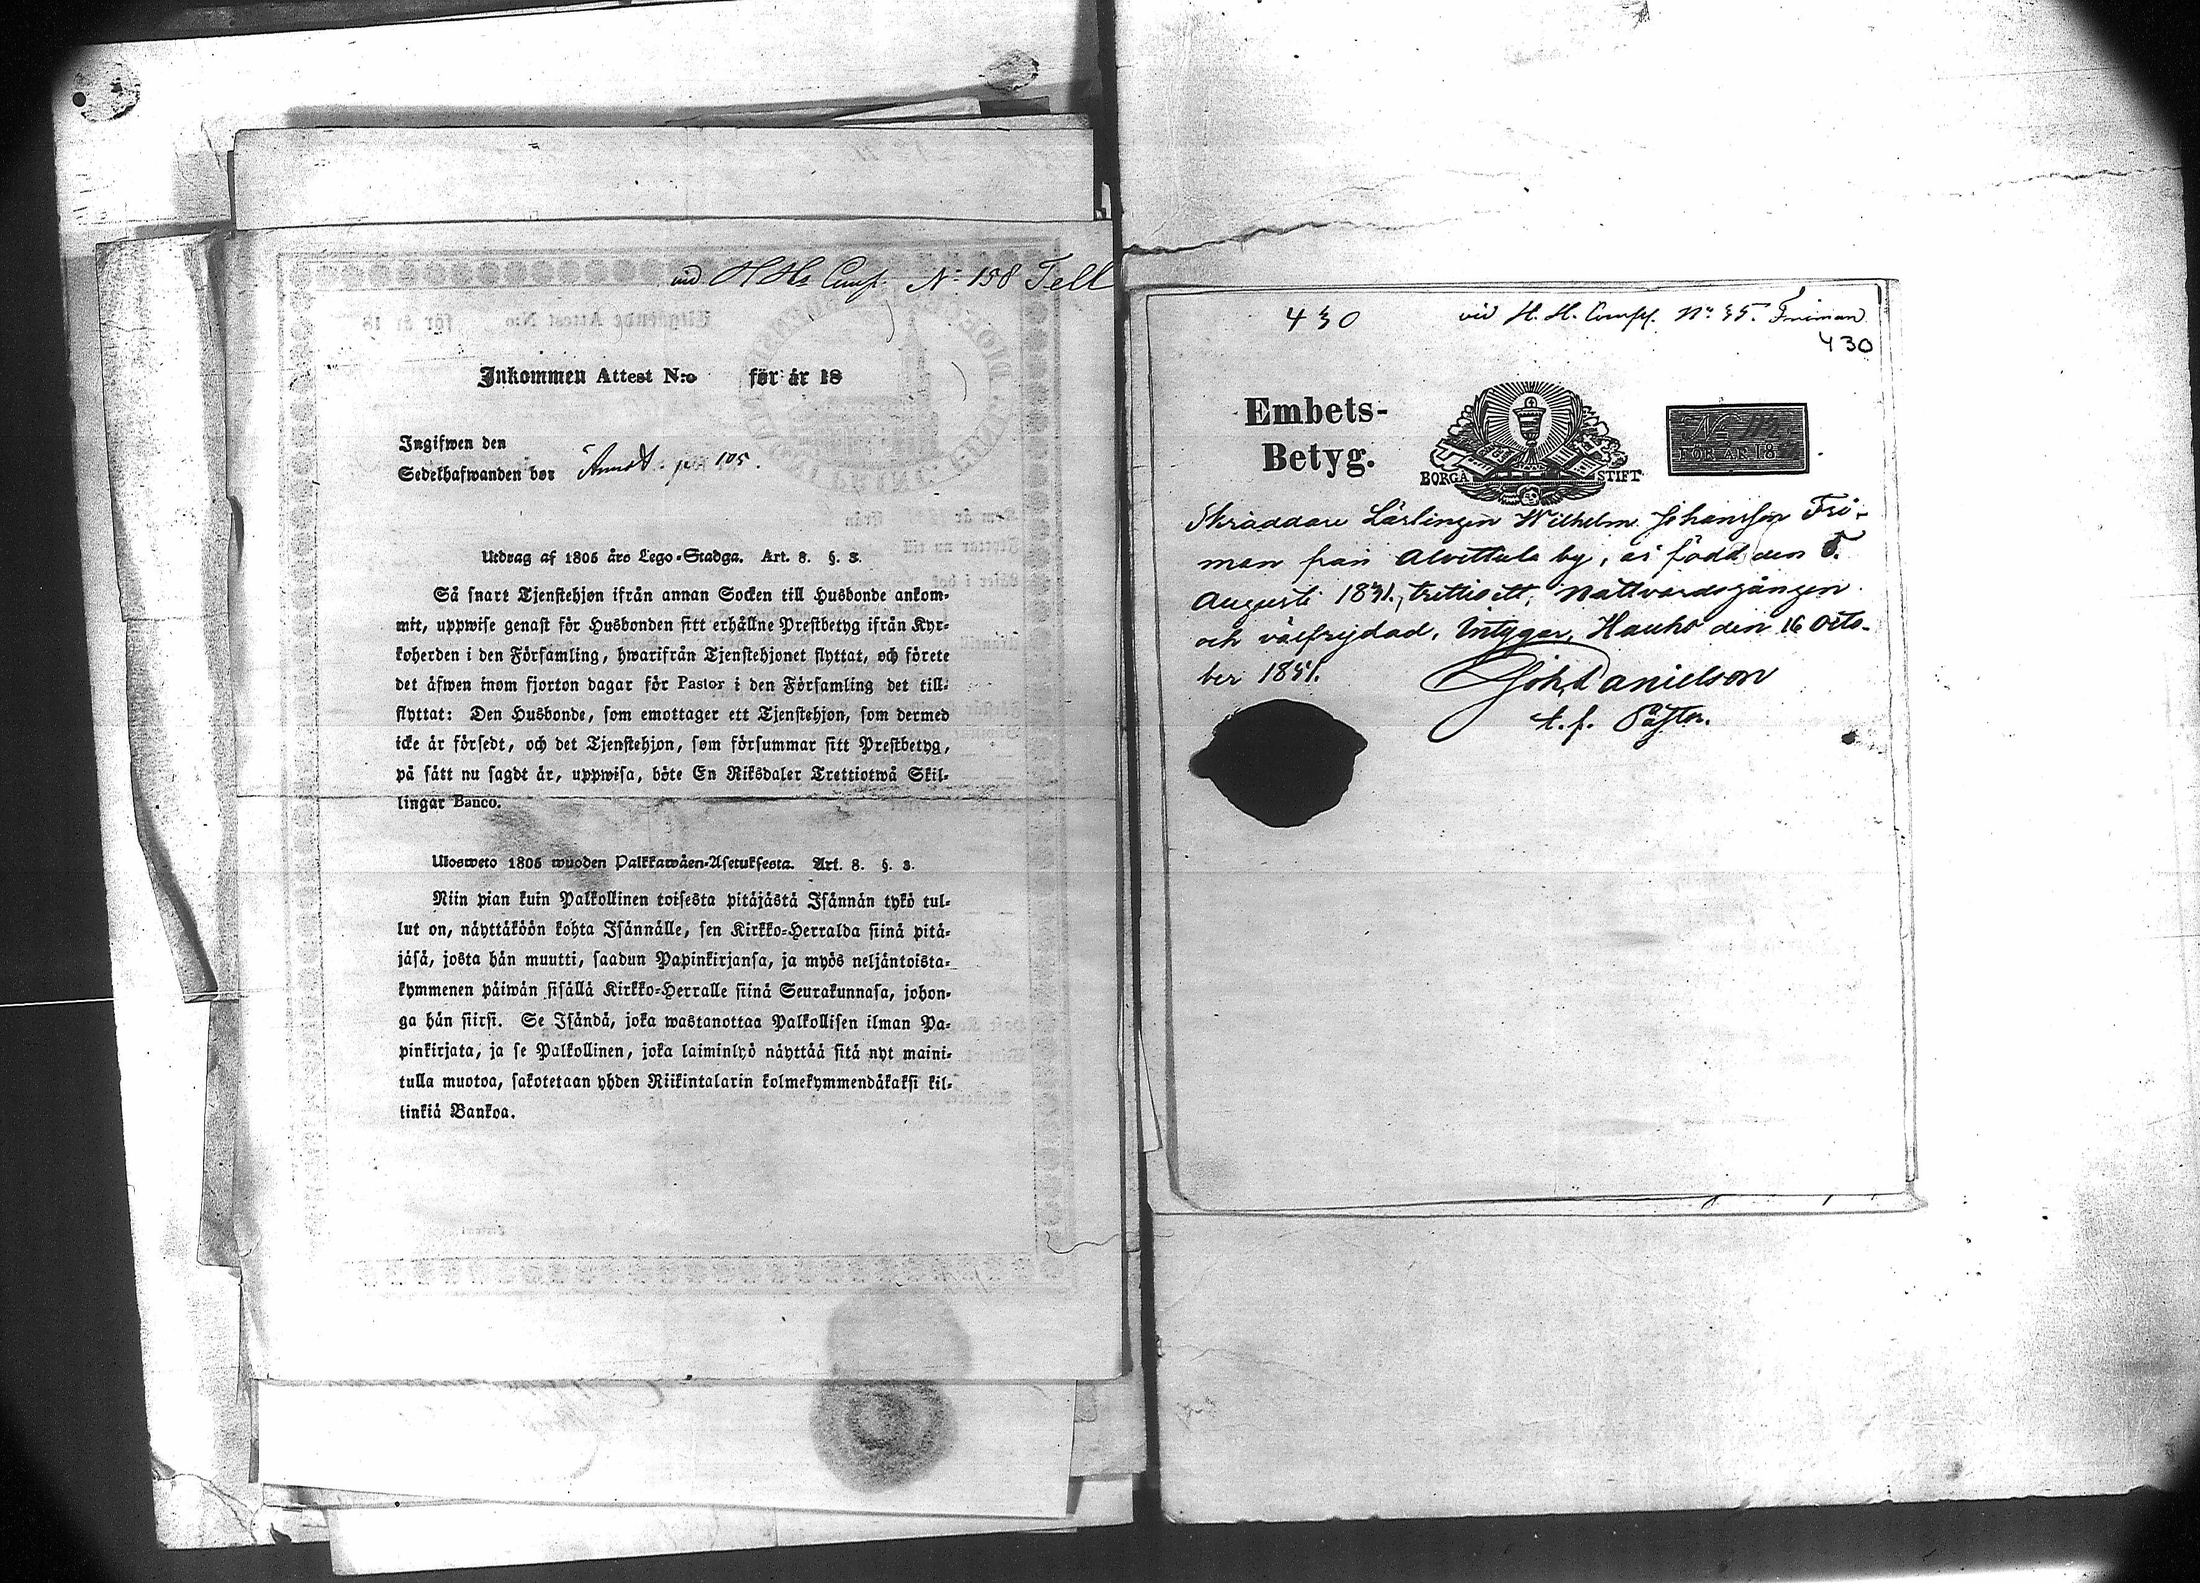 vid H Hs Comp. No 158 Tell
Inkommen Attest N:o för år 18
Ingifwen den
Sedelhafwanden bor 105.
Utdrag af 1805 års Lego-Stadga. Art. 8. §. 3.
Så snart Tjenstehjon ifrån annan Socken till Husbonde ankom-
mit, uppwise genast för Husbonden sitt erhållne Prestbetyg ifrån Kyr-
koherden i den Församling, hwarifrån Tjenstehjonet flyttat, och förete
det äfwen inom fjorton dagar för Pastor i den Församling det till-
flyttat: Den Husbonde, som emottager ett Tjenstehjon, som dermed
icke är försedt, och det Tjenstehjon, som försummar sitt Prestbetyg,
på sätt nu sagdt är, uppwisa, böte En Riksdaler Trettiotwå Skil-
lingar Banco.
Ulosweto 1805 wuoden Palkkawäen-Asetuksesta. Art. 8. §. 3.
Niin pian kuin Palkollinen toisesta pitäjästä Isännän tykö tul-
lut on, näyttäköön kohta Isännälle, sen Kirkko-Herralda siinä pitä-
jäsä, josta hän muutti, saadun Papinkirjansa, ja myös neljäntoista-
kymmenen päiwän sisällä Kirkko-Herralle siinä Seurakunnasa, johon-
ga hän siirsi. Se Isändä, joka wastanottaa Palkollisen ilman Pa-
pinkirjata, ja se Palkollinen, joka laiminlyö näyttää sitä nyt maini-
tulla muotoa, sakotetaan yhden Riikintalarin kolmekymmendäkaksi kil-
linkiä Bankoa.
430 vid H. H. Comp. No 35. Friman
430
Embets-
Betyg.
BORGÅ STIFT
No 112
FÖR ÅR 18
Skräddare Lärlingen Wilhelm Johansson Fri-
man från Alvettula by, är född den 5.
Augusti 1831, trettioett, Nattvardsgången
och välfrejdad, Intygar, Hauho den 16 Octo-
ber 1851.
Joh. Danielson
t. f. Pastor.